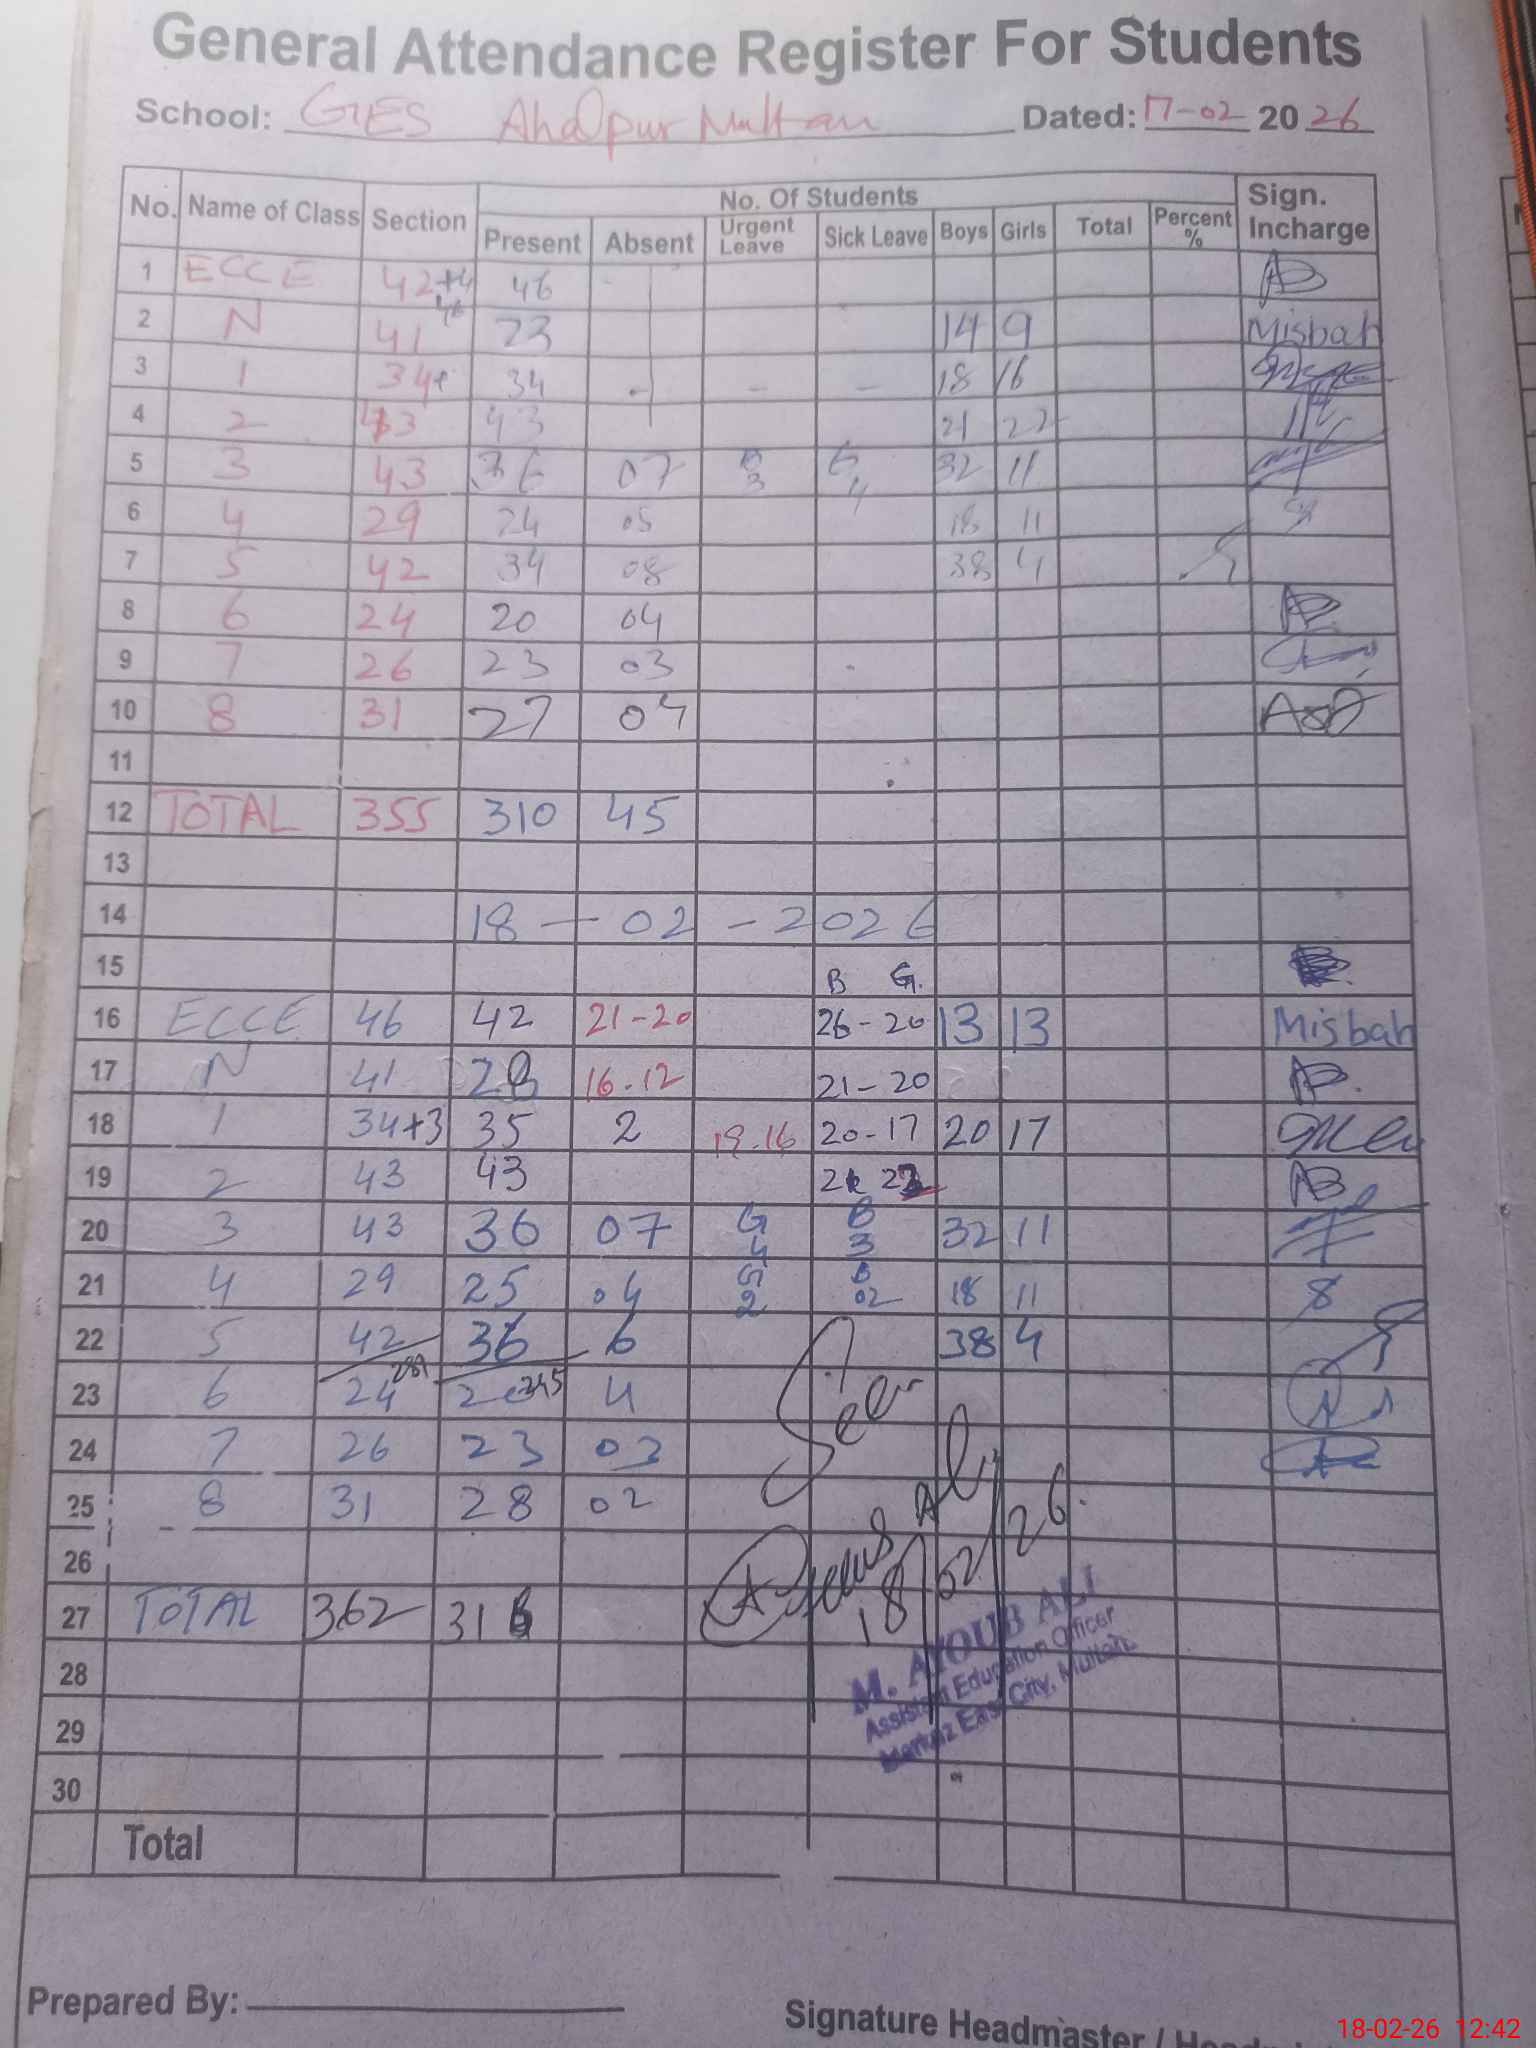 General Attendance Register For Students
School: GES Multan Dated: 17-02 20 26
No. Name of Class Section No. Of Students Sign. Incharge
Present Absent Urgent Leave Sick Leave Boys Girls Total Percent %
1 ECCE 42+4 46 46
2 N 41 23 14 9 Misbah
3 1 34+ 34 - - - 18 16
4 2 43 43 21 22
5 3 43 36 07 B 3 G 4 32 11
6 4 29 24 05 18 11
7 5 42 34 08 38 4
8 6 24 20 04
9 7 26 23 03
10 8 31 27 04
11
12 TOTAL 355 310 45
13
14 18 - 02 - 2026
15 B G.
16 ECCE 46 42 21-20 26-20 13 13 Misbah
17 N 41 28 16-12 21-20
18 1 34+3 35 2 19-16 20-17 20 17
19 2 43 43
20 3 43 36 07 G 4 B 3 32 11
21 4 29 25 04 G 2 B 02 18 11
22 5 42 36 6 38 4
23 6 24 245 4
24 7 26 23 03
25 8 31 28 02
Seen
26
18/02/26
27 TOTAL 362
M. AYOUB ALI
Assistant Education Officer
Markaz East City, Multan
28
29
30
Total
Prepared By:
Signature Headmaster /
18-02-26 12:42